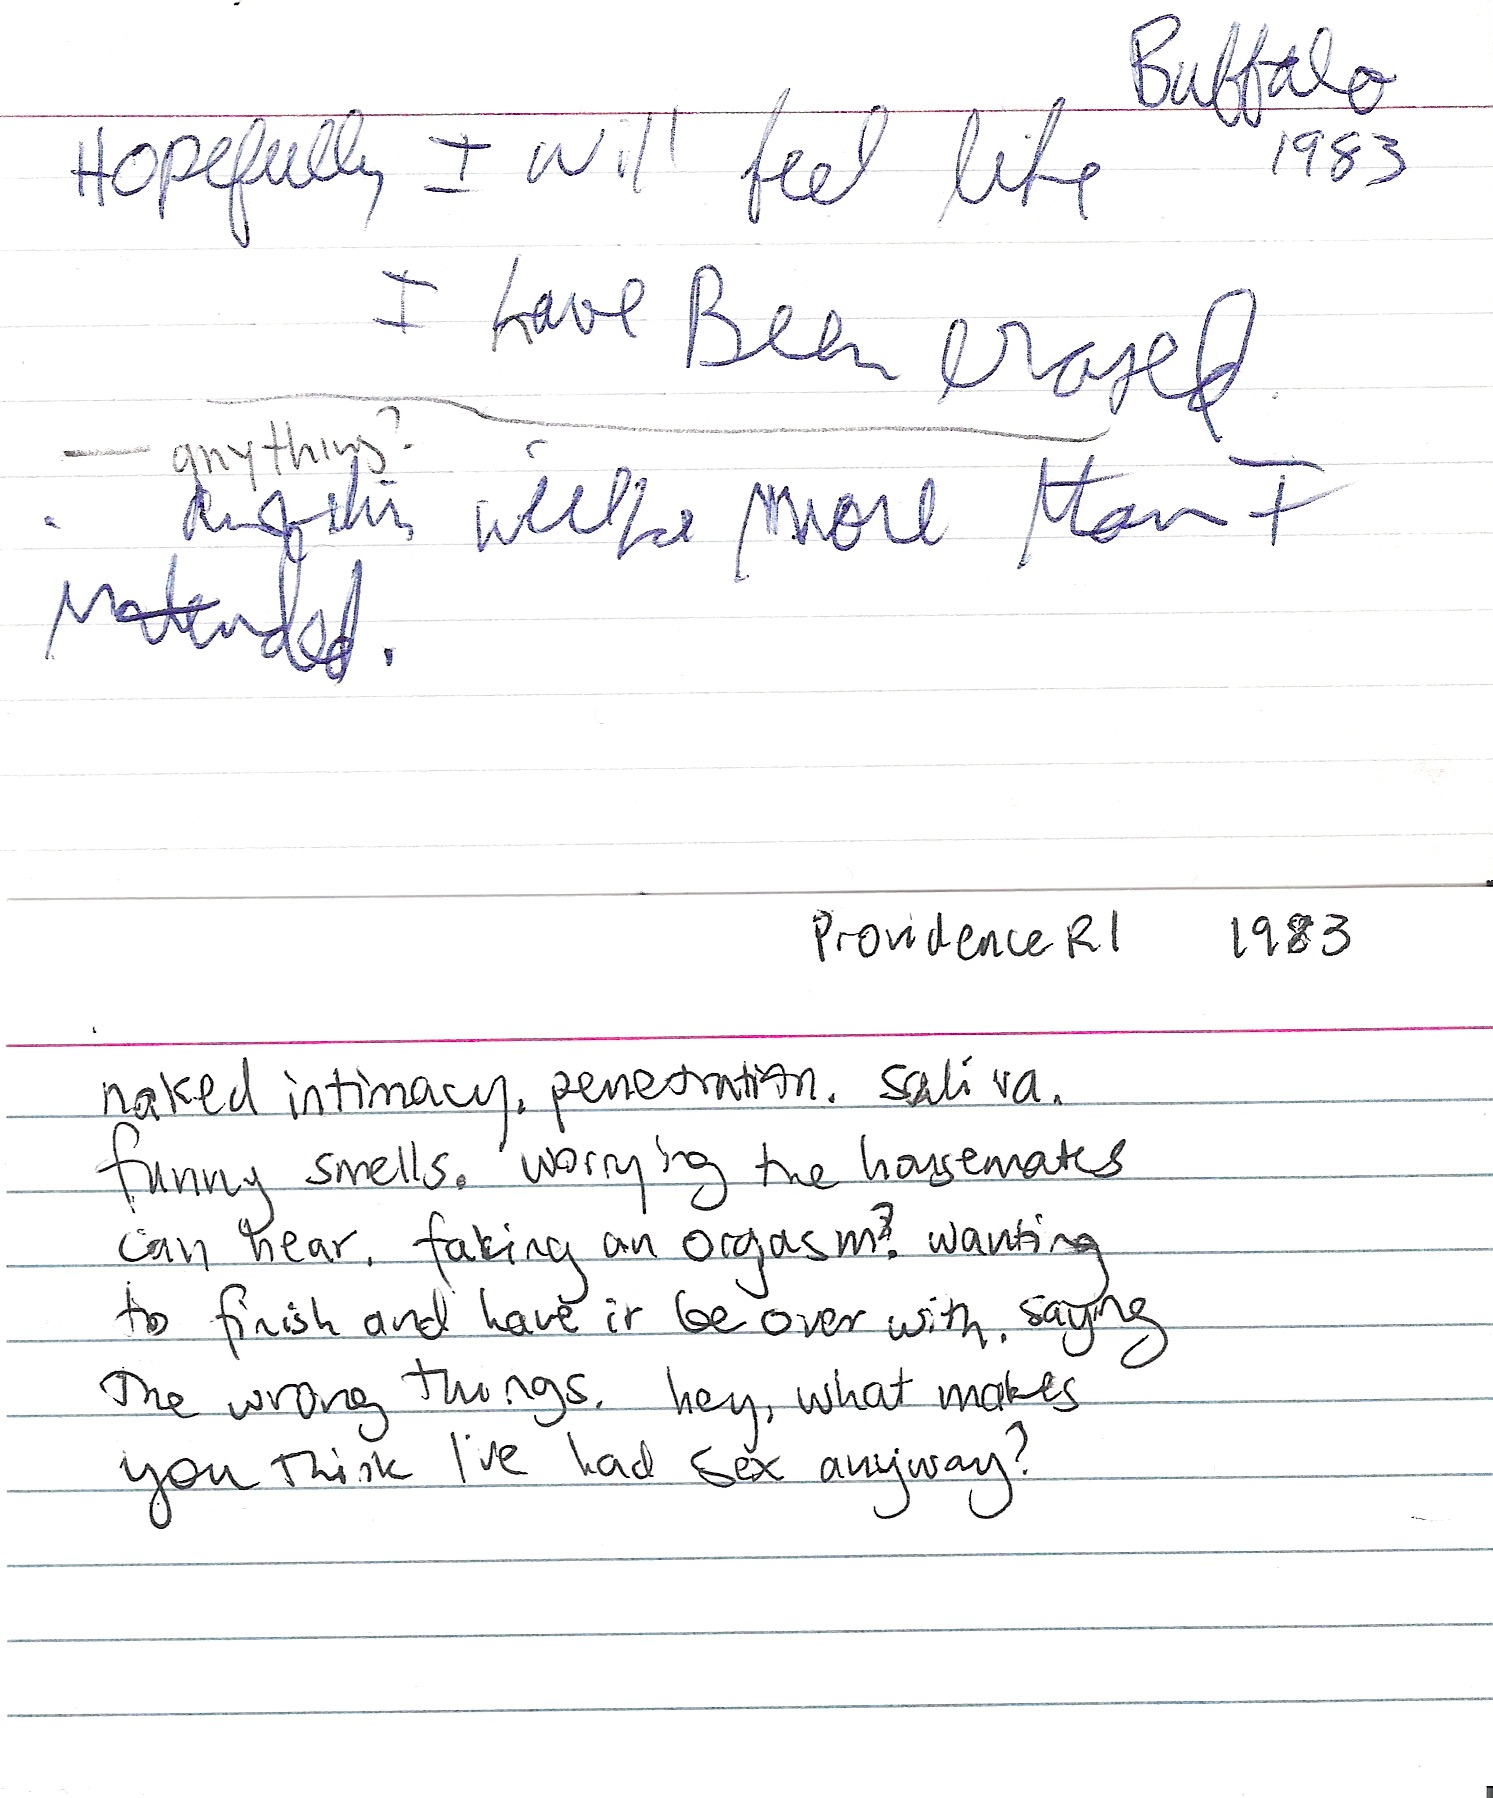 Buffalo
1983
Hopefully I will feel like
I have Been erased
— anything?
will be more than I
intended.
Providence RI 1983
naked intimacy. penetration. saliva.
funny smells. worrying the housemates
can hear. faking an orgasm? wanting
to finish and have it be over with. saying
the wrong things. hey, what makes
you think I've had sex anyway?